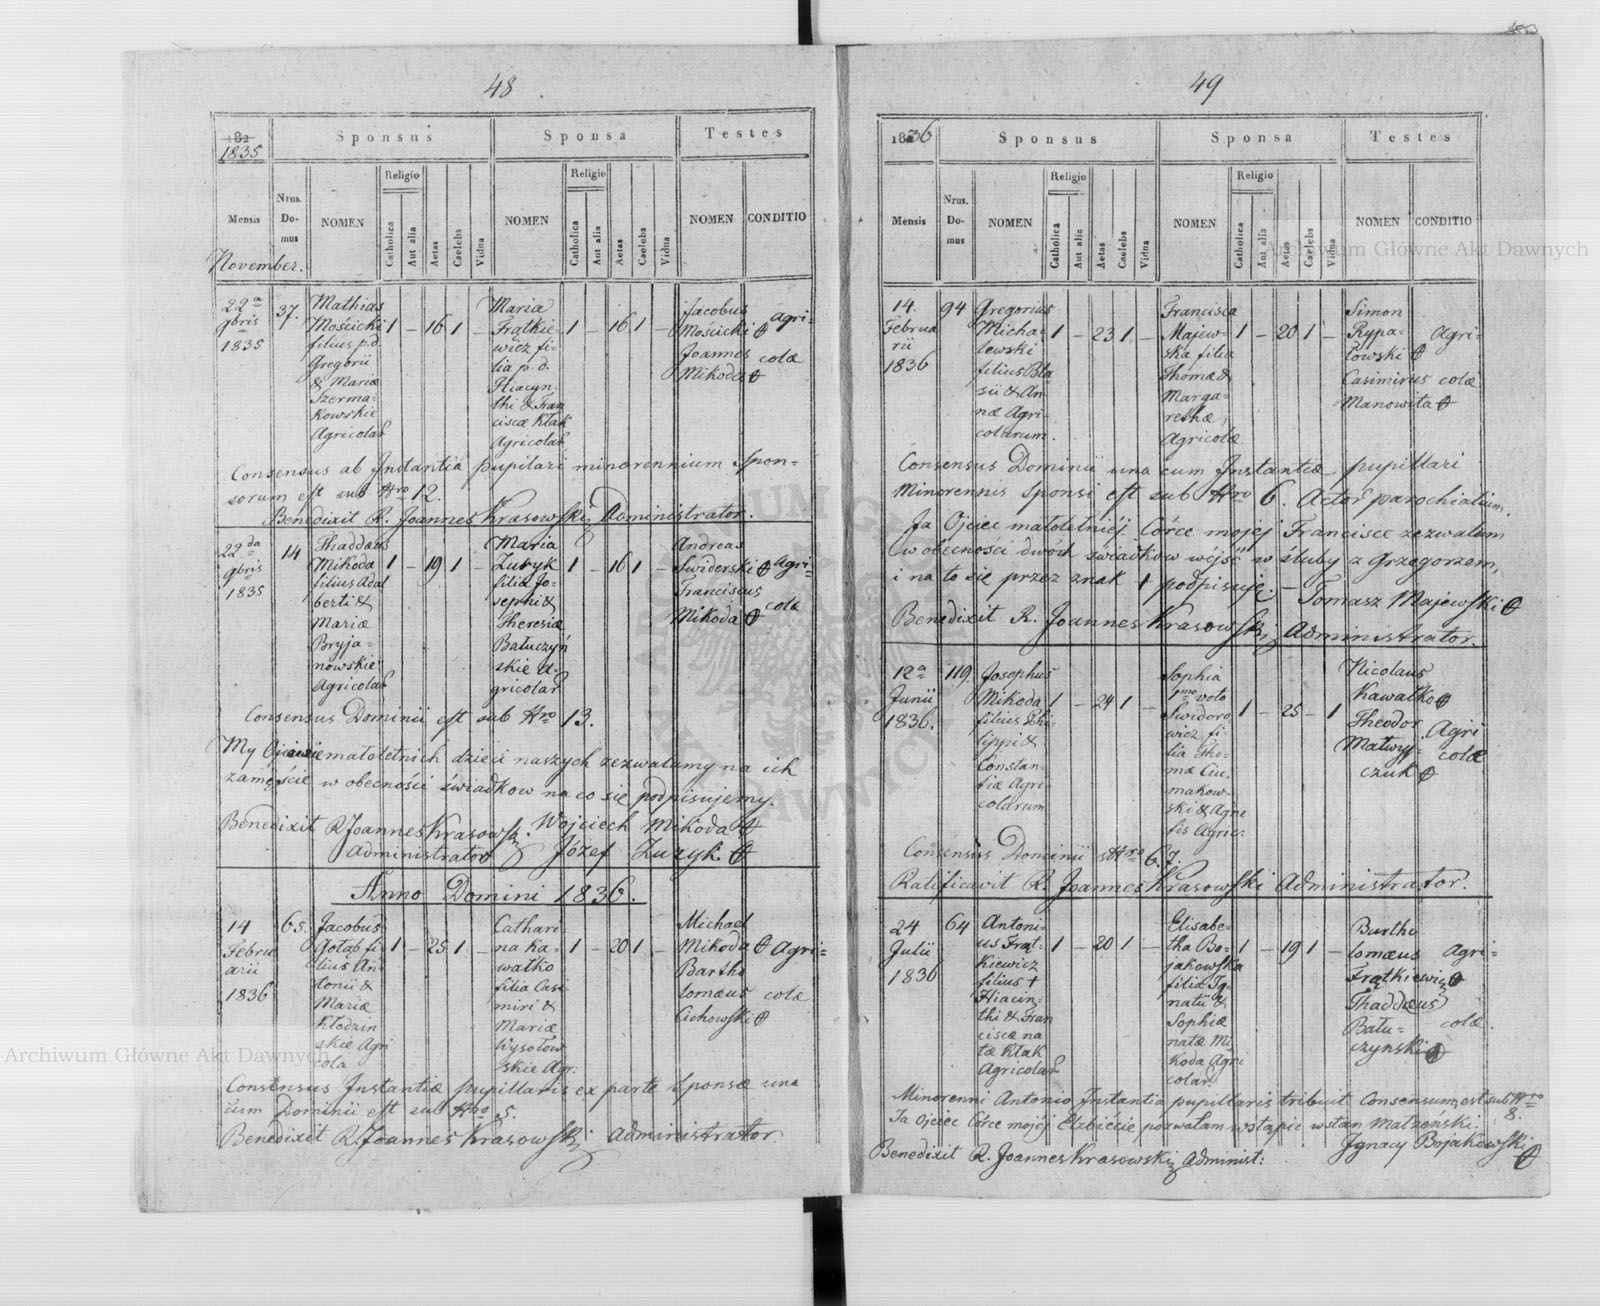 48
1835
Sponsus
Sponsa
Testes
Mensis
Nrus. Domus
NOMEN
Religio
Catholica
Aut alia
Aetas
Caelebs
Vidua
NOMEN
Religio
Catholica
Aut alia
Aetas
Caelebs
Vidua
NOMEN
CONDITIO
November.
22a
9bris
1835
37.
Mathias
Mościcki
filius p.d.
Gregorii
& Mariæ
Szerma-
kowskie
Agricolar
1 – 16 1 –
Maria
Frątkie-
wicz fi-
lia p. d.
Hiacyn-
thi & Fran
ciscæ Kłak
Agricolar
1 – 16 1 –
Jacobus
Mościcki
Joannes
Mikoda
Agri-
colæ
Consensus ab Instantia pupilari minorennium Spon-
sorum est sub Nro 12.
Benedixit R. Joannes Krasowski Administrator.
22da
9bris
1835
14
Thaddæus
Mikoda
filius Adal
berti &
Mariæ
Bryja-
nowskie
Agricolar
1 – 19 1 –
Maria
Zuryk
filia Jo-
sephi &
Theresiæ
Bałuczyń
skie A-
gricolar
1 – 16 1 –
Andreas
Swiderski
Franciscus
Mikoda
Agri-
colæ
Consensus Dominii est sub Nro 13.
My Ojcowie małoletnich dzieci naszych zezwalamy na ich
zamęście w obecności świadkow na co się podpisujemy.
Benedixit R Joannes Krasowski
Administrator
Wojciech Mikoda
Józef Zuryk.
Anno Domini 1836.
14
Febru
arii
1836
65.
Jacobus
Gołąb fi-
lius An
tonii &
Mariæ
Kłodzin
skie Agri
cola
1 – 25 1 –
Cathari-
na Ka-
wałko
filia Casi
miri &
Mariæ
Wysołow
skie Agr.
1 – 20 1 –
Michael
Mikoda
Bartho
lomæus
Cichowski
Agri-
colæ
Consensus Instantiæ pupillaris ex parte Sponsæ una
cum Dominii est sub Nro 5.
Benedixit R. Joannes Krasowski Administrator.
49
1836
Sponsus
Sponsa
Testes
Mensis
Nrus. Domus
NOMEN
Religio
Catholica
Aut alia
Aetas
Caelebs
Vidua
NOMEN
Religio
Catholica
Aut alia
Aetas
Caelebs
Vidua
NOMEN
CONDITIO
14.
Februa
rii
1836
94
Gregorius
Micha-
lewski
filius Bla
sii & An
næ Agri-
colarum.
1 – 23 1 –
Francisca
Majew-
ska filia
Thomæ &
Marga-
rethæ
Agricolæ
1 – 20 1 –
Simon
Rypa-
łowski
Casimirus
Manowita
Agri-
colæ
Consensus Dominii una cum Instantiæ pupillari
Minorennis Sponsi est sub Nro 6. Actor parochialium.
Ja Ojciec małoletniéj Córce mojej Francisce zezwalam
w obecności dwóch swiadków wejść w śluby z Grzegorzem,
i na to się przez znak + podpisuję. – Tomasz Majewski
Benedixit R. Joannes Krasowski Administrator.
12a
Junii
1836.
119.
Josephus
Mikoda
filius Phi
lippi &
Constan-
tiæ Agri-
colarum
1 – 24 1 –
Sophia
1mo voto
Swidoro
wicz fi-
lia Tho-
mæ Ciu-
makow-
ski & Agne
tis Agric:
1 – 25 – 1
Nicolaus
Kawałko
Theodor
Matwy-
czuk
Agri
colæ
Consensus Dominii s Nro 6. 7.
Ratificavit R. Joannes Krasowski Administrator.
24
Julii
1836
64
Antoni-
us Frąt-
kiewicz
filius +
Hiacin-
thi & Fran
ciscæ na
tæ Kłak
Agricolar
1 – 20 1 –
Elisabe-
tha Bo-
jakowska
filia Ig-
natii &
Sophiæ
natæ Mi-
koda Agri
colar
1 – 19 1 –
Bartho
lomæus
Frątkiewicz
Thaddæus
Bału-
czynski
Agri-
colæ.
Minorenni Antonio Instantia pupillaris tribuit Consensum, est sub Nro
8.
Ja Ojciec Córce mojéj Elzbiecie pozwalam wstąpic w stan Małzeński.
Ignacy Bojakowski
Benedixit R. Joannes Krasowski Administ:
Archiwum Główne Akt Dawnych
Archiwum Główne Akt Dawnych